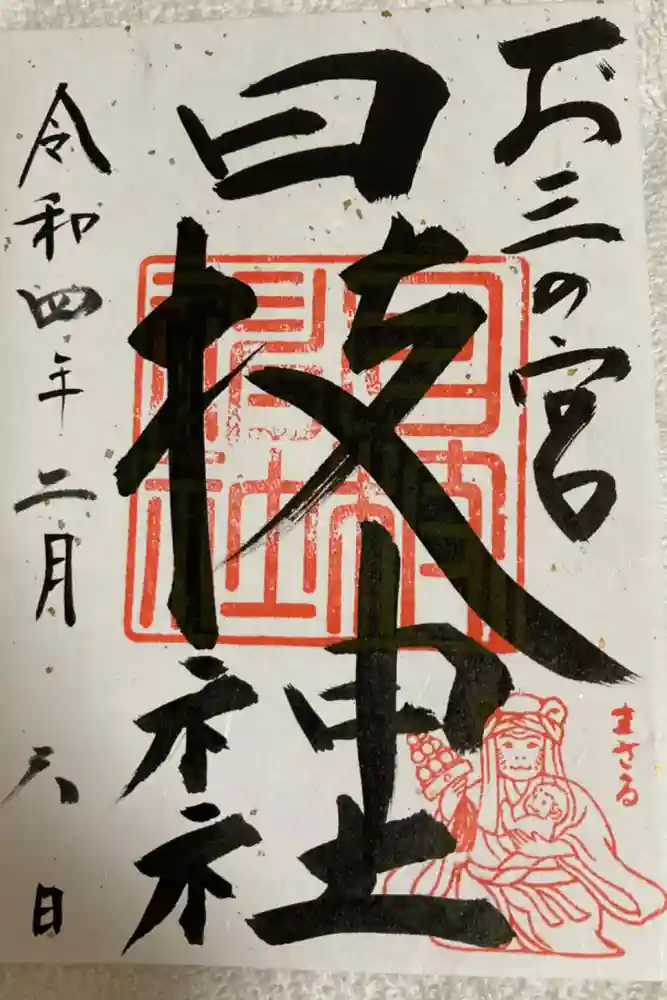 お三の宮
日枝神社
令和四年二月六日
日枝神社
まさる